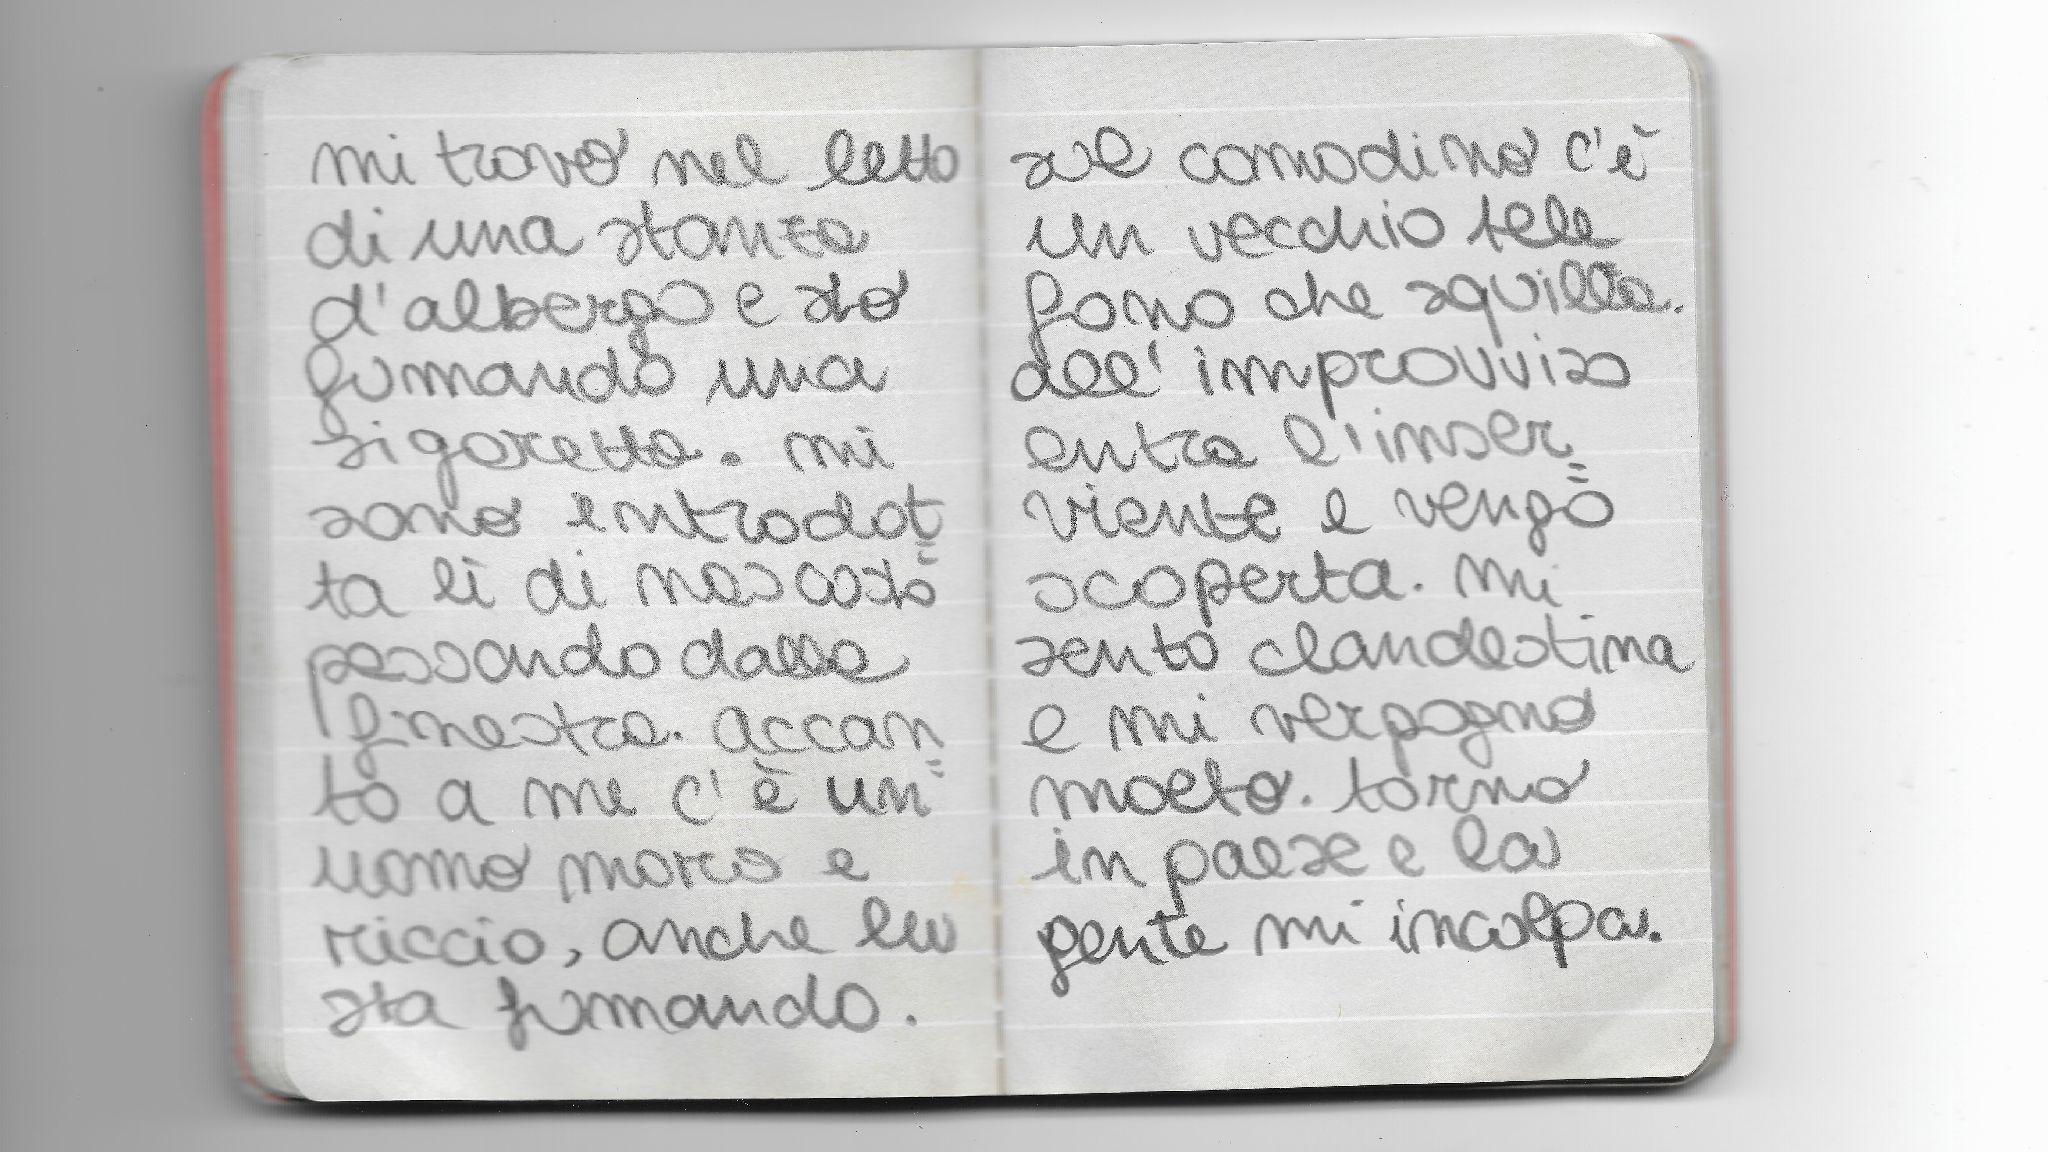 mi trovo nel letto
di una stanza
d'albergo e sto
fumando una
sigaretta. mi
sono introdot=
ta lì di nascosto
passando dalla
finestra. accan=
to a me c'è un
uomo moro e
riccio, anche lui
sta fumando.
sul comodino c'è
un vecchio tele
fono che squilla.
all'improvviso
entra l'inser=
viente e vengo
scoperta. mi
sento clandestina
e mi vergogno
molto. torno
in paese e la
gente mi incolpa.